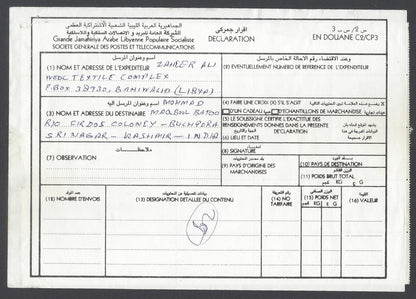 الجماهيرية العربية الليبية الشعبية الاشتراكية العظمى
الشركة العامة للبريد و الاتصالات السلكية و اللاسلكية
Grande Jamahiriya Arabe Libyenne Populaire Socialiste
SOCIETE GENERALE DES POSTES ET TELECOMMUNICATIONS
اقرار جمركي
DECLARATION
EN DOUANE C2/CP3
اسم وعنوان المرسل
(1) NOM ET ADRESSE DE L'EXPEDITEUR ZAHEER ALI
WEDC TEXTILE COMPLEX
P.BOX 38930, BANIWALID (LIBYA)
(2) EVENTUELLEMENT NUMERO DE REFERENCE DE L'EXPEDITEUR
اسم وعنوان المرسل اليه
MOHMAD
(3) NOM ET ADRESSE DU DESTINAIRE MAQBOOL BATOO
R/O FIRDOS COLONEY - BUCHPORA
SRINAGAR - KASHMIR - INDIA
(4) FAIRE UNE CROIX (X) S'IL S'AGIT
D'UN CADEAU D'ECHANTILLONS DE MARCHANDISE
(5) LE SOUSSIGNE CERTIFIE L'EXACTITUDE DES
RENSEIGNEMENTS DONNES DANS LA PRESENTE
DECLARATION
(6) LIEU ET DATE
ملاحظات
(7) OBSERVATION
(8) SIGNATURE
(9) PAYS D'ORIGINE DES
MARCHANDISES
(10) PAYS DE DESTINATION
(11) POIDS BRUT TOTAL
KG G
(12) NOMBRE D'ENVOIS
(13) DESIGNATION DETAILLE DU CONTENU
(14) NO
TARIFAIRE
(15) POIDS NET
KG G
(16) VALEUR